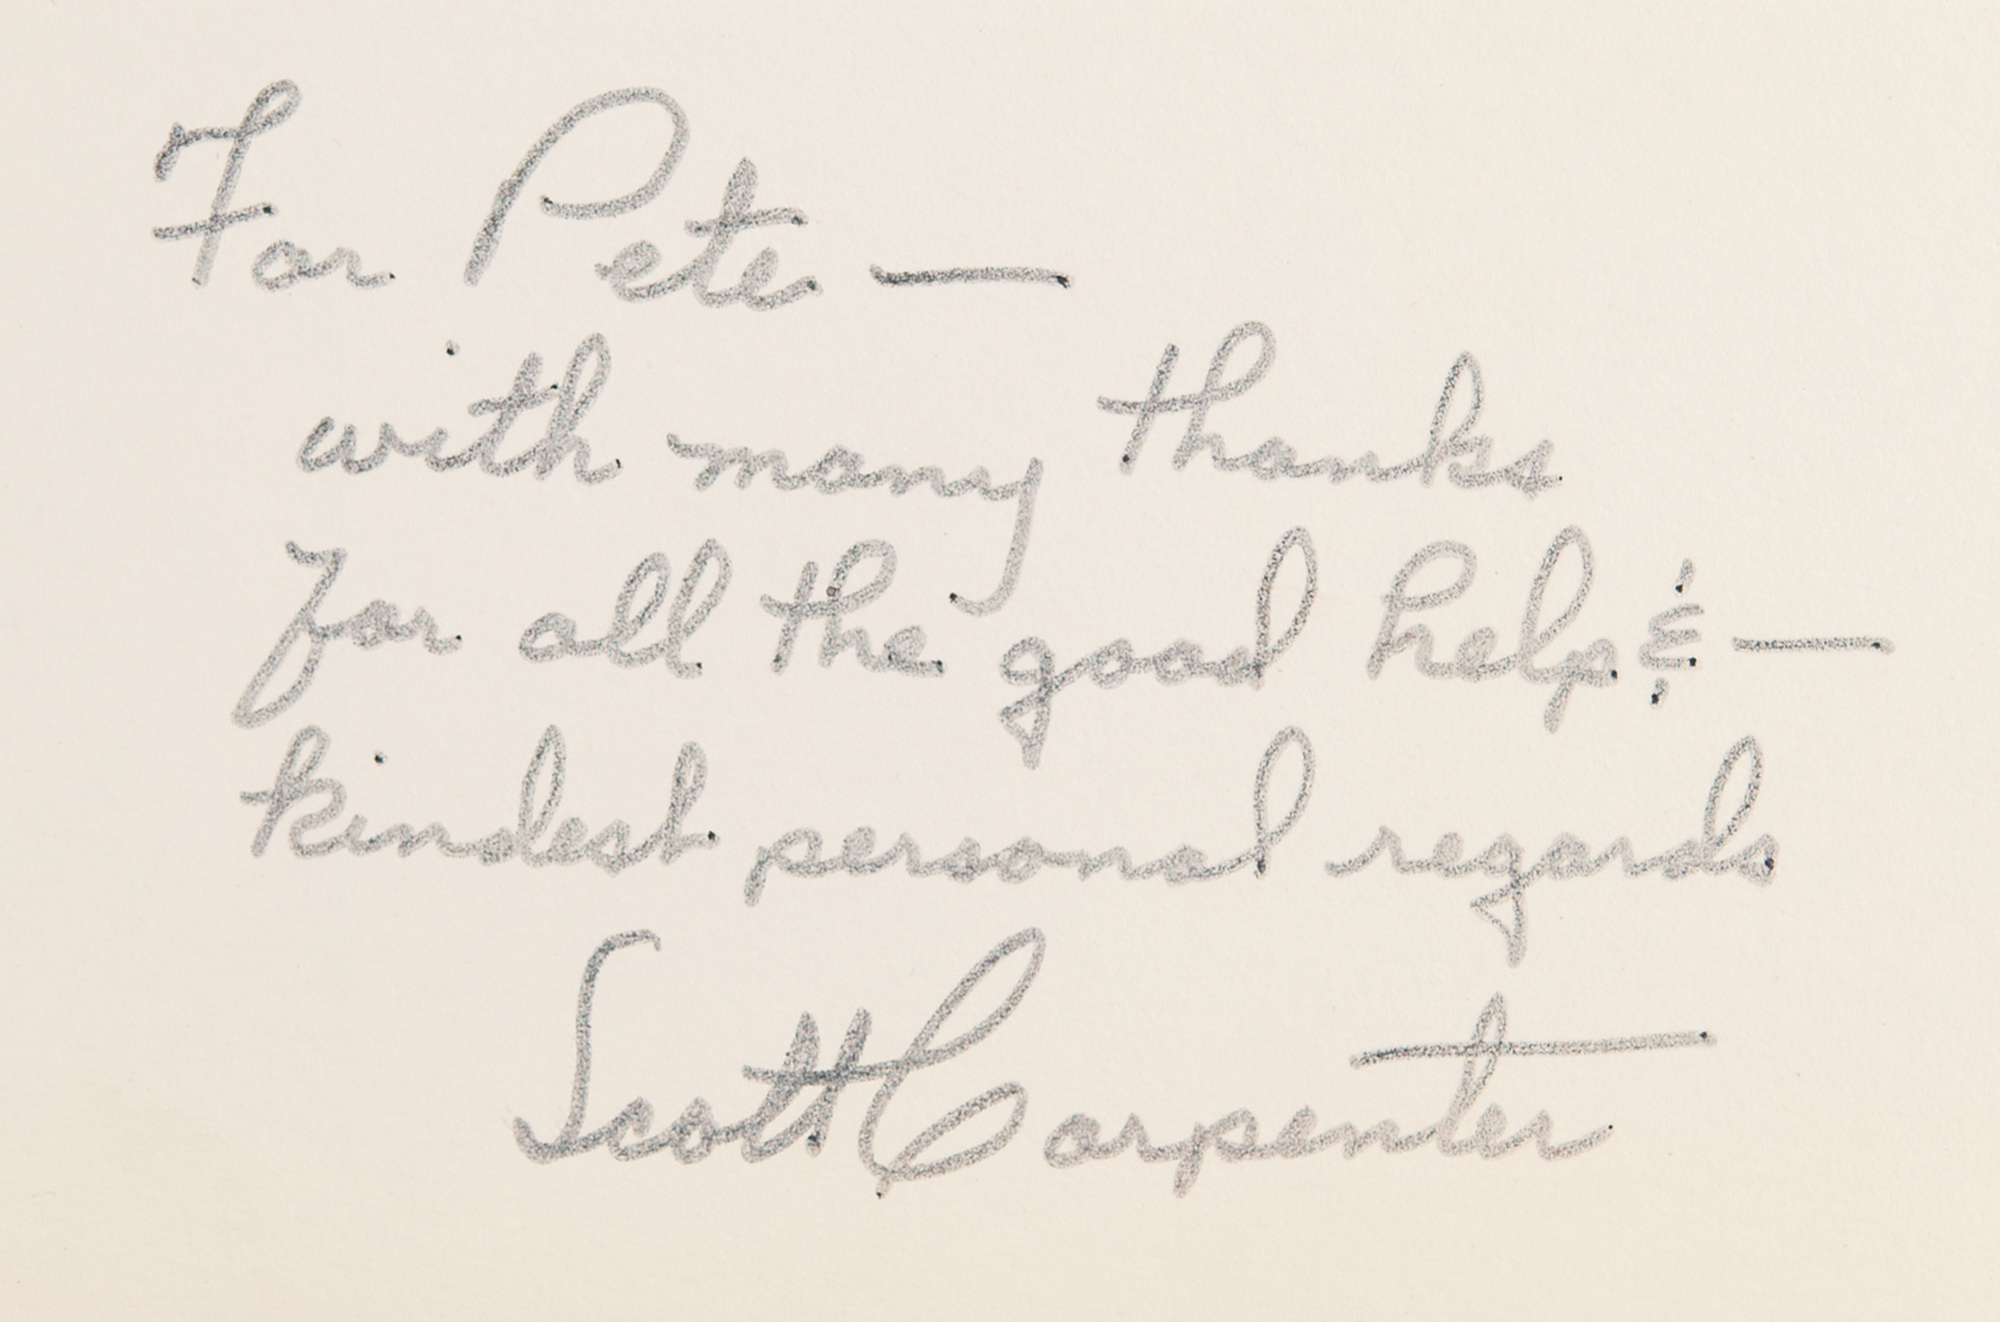 For Pete —
with many thanks
for all the good help & —
kindest personal regards
Scott Carpenter